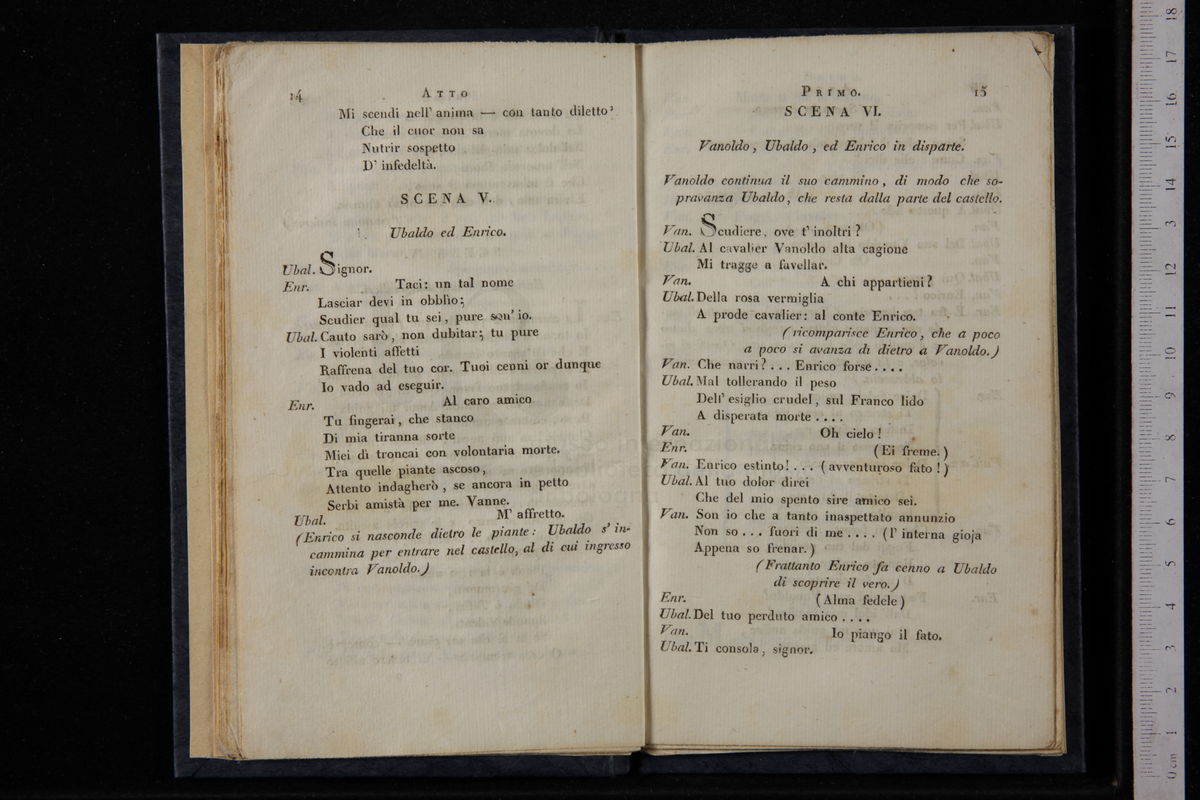 14 ATTO
Mi scendi nell' anima — con tanto diletto
Che il cuor non sa
Nutrir sospetto
D' infedeltà.
SCENA V.
Ubaldo ed Enrico.
Ubal. Signor.
Enr. Taci: un tal nome
Lasciar devi in obblìo;
Scudier qual tu sei, pure son' io.
Ubal. Cauto sarò, non dubitar; tu pure
I violenti affetti
Raffrena del tuo cor. Tuoi cenni or dunque
Io vado ad eseguir.
Enr. Al caro amico
Tu fingerai, che stanco
Di mia tiranna sorte
Miei dì troncai con volontaria morte.
Tra quelle piante ascoso,
Attento indagherò, se ancora in petto
Serbi amistà per me. Vanne.
Ubal. M' affretto.
(Enrico si nasconde dietro le piante: Ubaldo s' in-
cammina per entrare nel castello, al di cui ingresso
incontra Vanoldo.)
PRIMO. 15
SCENA VI.
Vanoldo, Ubaldo, ed Enrico in disparte.
Vanoldo continua il suo cammino, di modo che so-
pravanza Ubaldo, che resta dalla parte del castello.
Van. Scudiere, ove t' inoltri?
Ubal. Al cavalier Vanoldo alta cagione
Mi tragge a favellar.
Van. A chi appartieni?
Ubal. Della rosa vermiglia
A prode cavalier: al conte Enrico.
(ricomparisce Enrico, che a poco
a poco si avanza di dietro a Vanoldo.)
Van. Che narri? ... Enrico forse ....
Ubal. Mal tollerando il peso
Dell' esiglio crudel, sul Franco lido
A disperata morte ....
Van. Oh cielo!
Enr. (Ei freme.)
Van. Enrico estinto! ... (avventuroso fato!)
Ubal. Al tuo dolor direi
Che del mio spento sire amico sei.
Van. Son io che a tanto inaspettato annunzio
Non so ... fuori di me .... (l' interna gioja
Appena so frenar.)
(Frattanto Enrico fa cenno a Ubaldo
di scoprire il vero.)
Enr. (Alma fedele)
Ubal. Del tuo perduto amico ....
Van. Io piango il fato.
Ubal. Ti consola, signor.